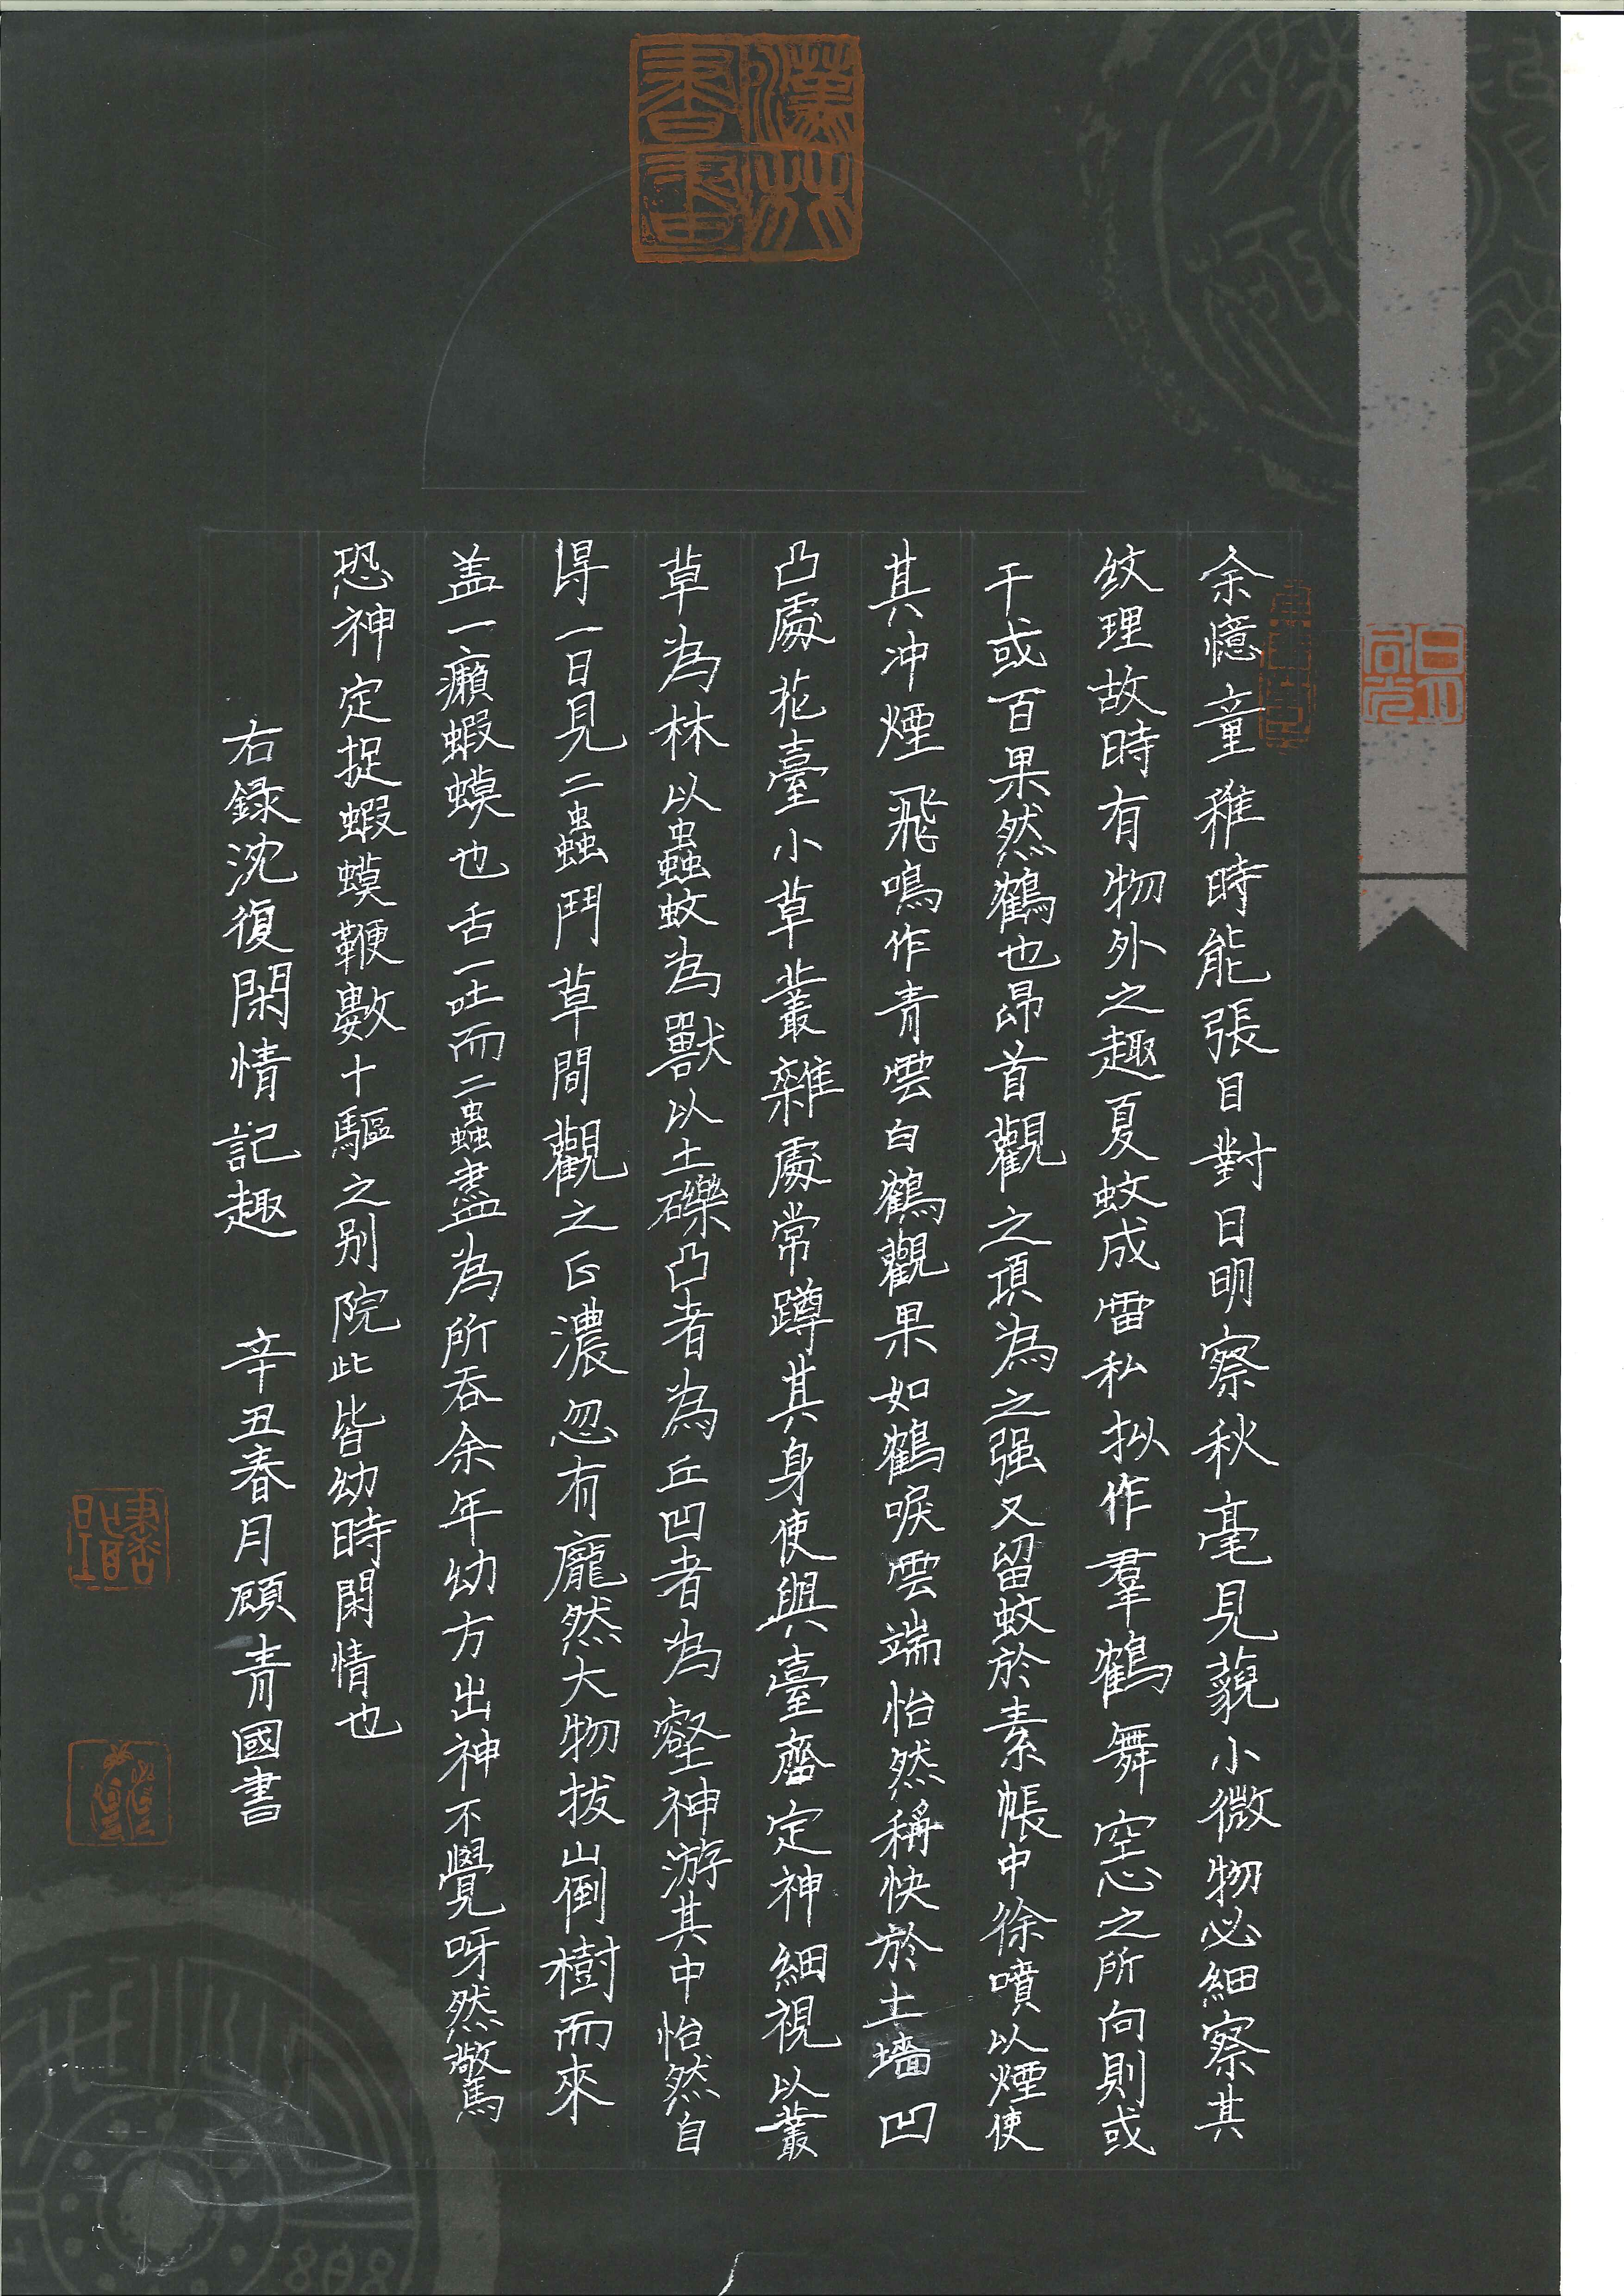 余憶童稚時能張目對日明察秋毫見藐小微物必細察其
紋理故時有物外之趣夏蚊成雷私拟作羣鶴舞空心之所向則或
千或百果然鶴也昂首觀之項為之强又留蚊於素帳中徐噴以煙使
其冲煙飛鳴作青雲白鶴觀果如鶴唳雲端怡然稱快於土墻凹
凸處花臺小草叢雜處常蹲其身使與臺齊定神細視以叢
草為林以蟲蚊為獸以土礫凸者為丘凹者為壑神游其中怡然自
得一日見二蟲鬥草間觀之正濃忽有龐然大物拔山倒樹而來
盖一癩蝦蟆也舌一吐而二蟲盡為所吞余年幼方出神不覺呀然驚
恐神定捉蝦蟆鞭數十驅之别院此皆幼時閑情也
右録沈復閑情記趣 辛丑春月顧青國書